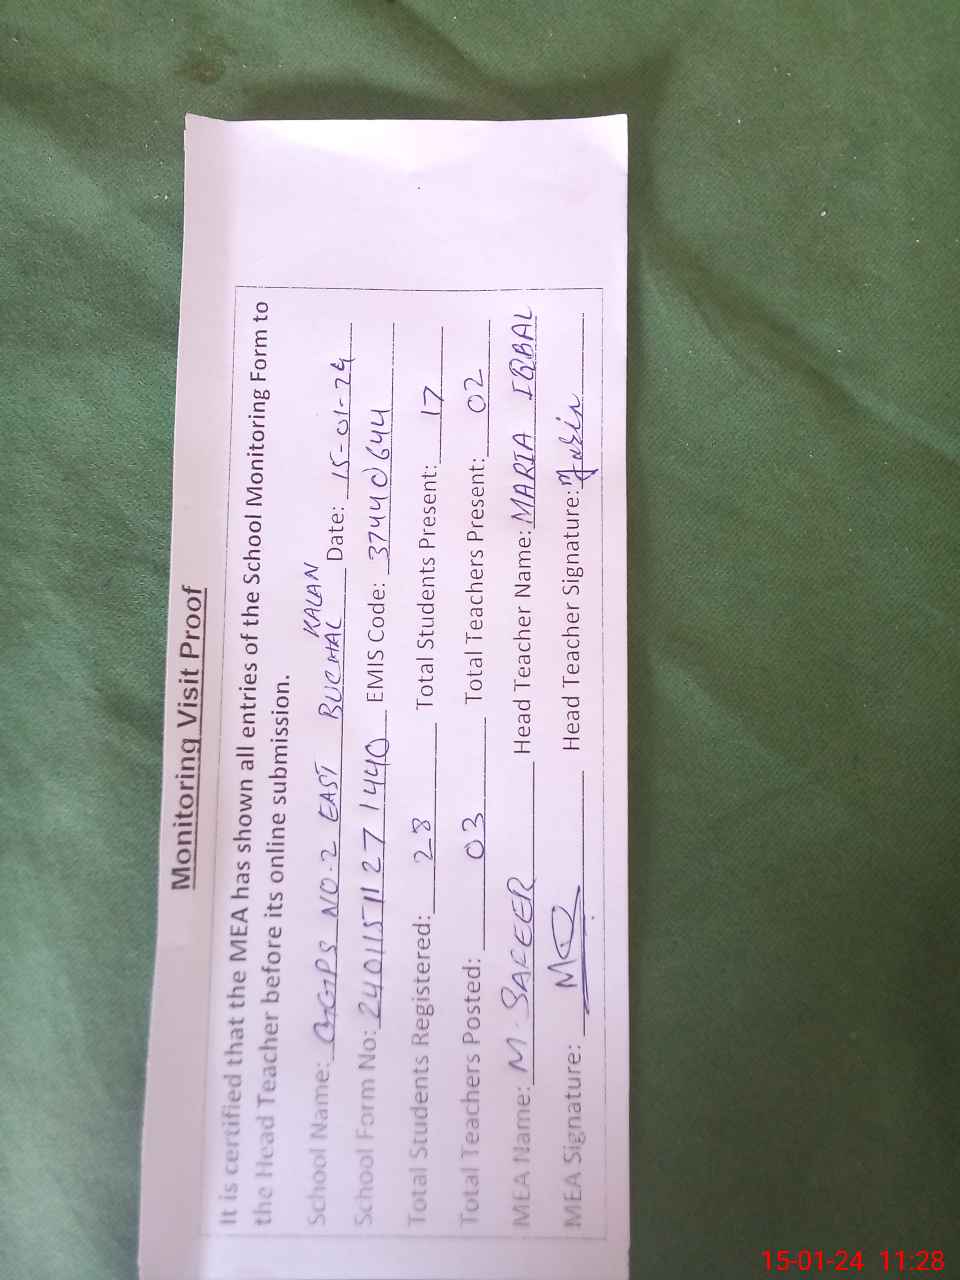 Monitoring Visit Proof
It is certified that the MEA has shown all entries of the School Monitoring Form to
the Head Teacher before its online submission.
School Name: GGPS NO.2 EAST BUCHAL KALAN Date: 15-01-24
School Form No: 2401151127 1440 EMIS Code: 37440644
Total Students Registered: 28 Total Students Present: 17
Total Teachers Posted: 03 Total Teachers Present: 02
MEA Name: M. SAFEER Head Teacher Name: MARIA IQBAL
MEA Signature: Head Teacher Signature:
15-01-24 11:28